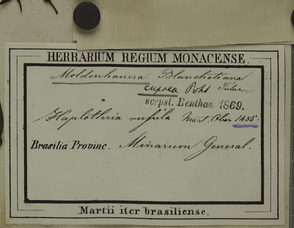 HERBARIUM REGIUM MONACENSE.
Moldenhauera Blanchetiana
cuprea Pohl
scrpst. Bentham 1869.
Haplothria rufula Mart. Obs. 1485
Brasilia Provinc. Minarum General.
Martii iter brasiliense.